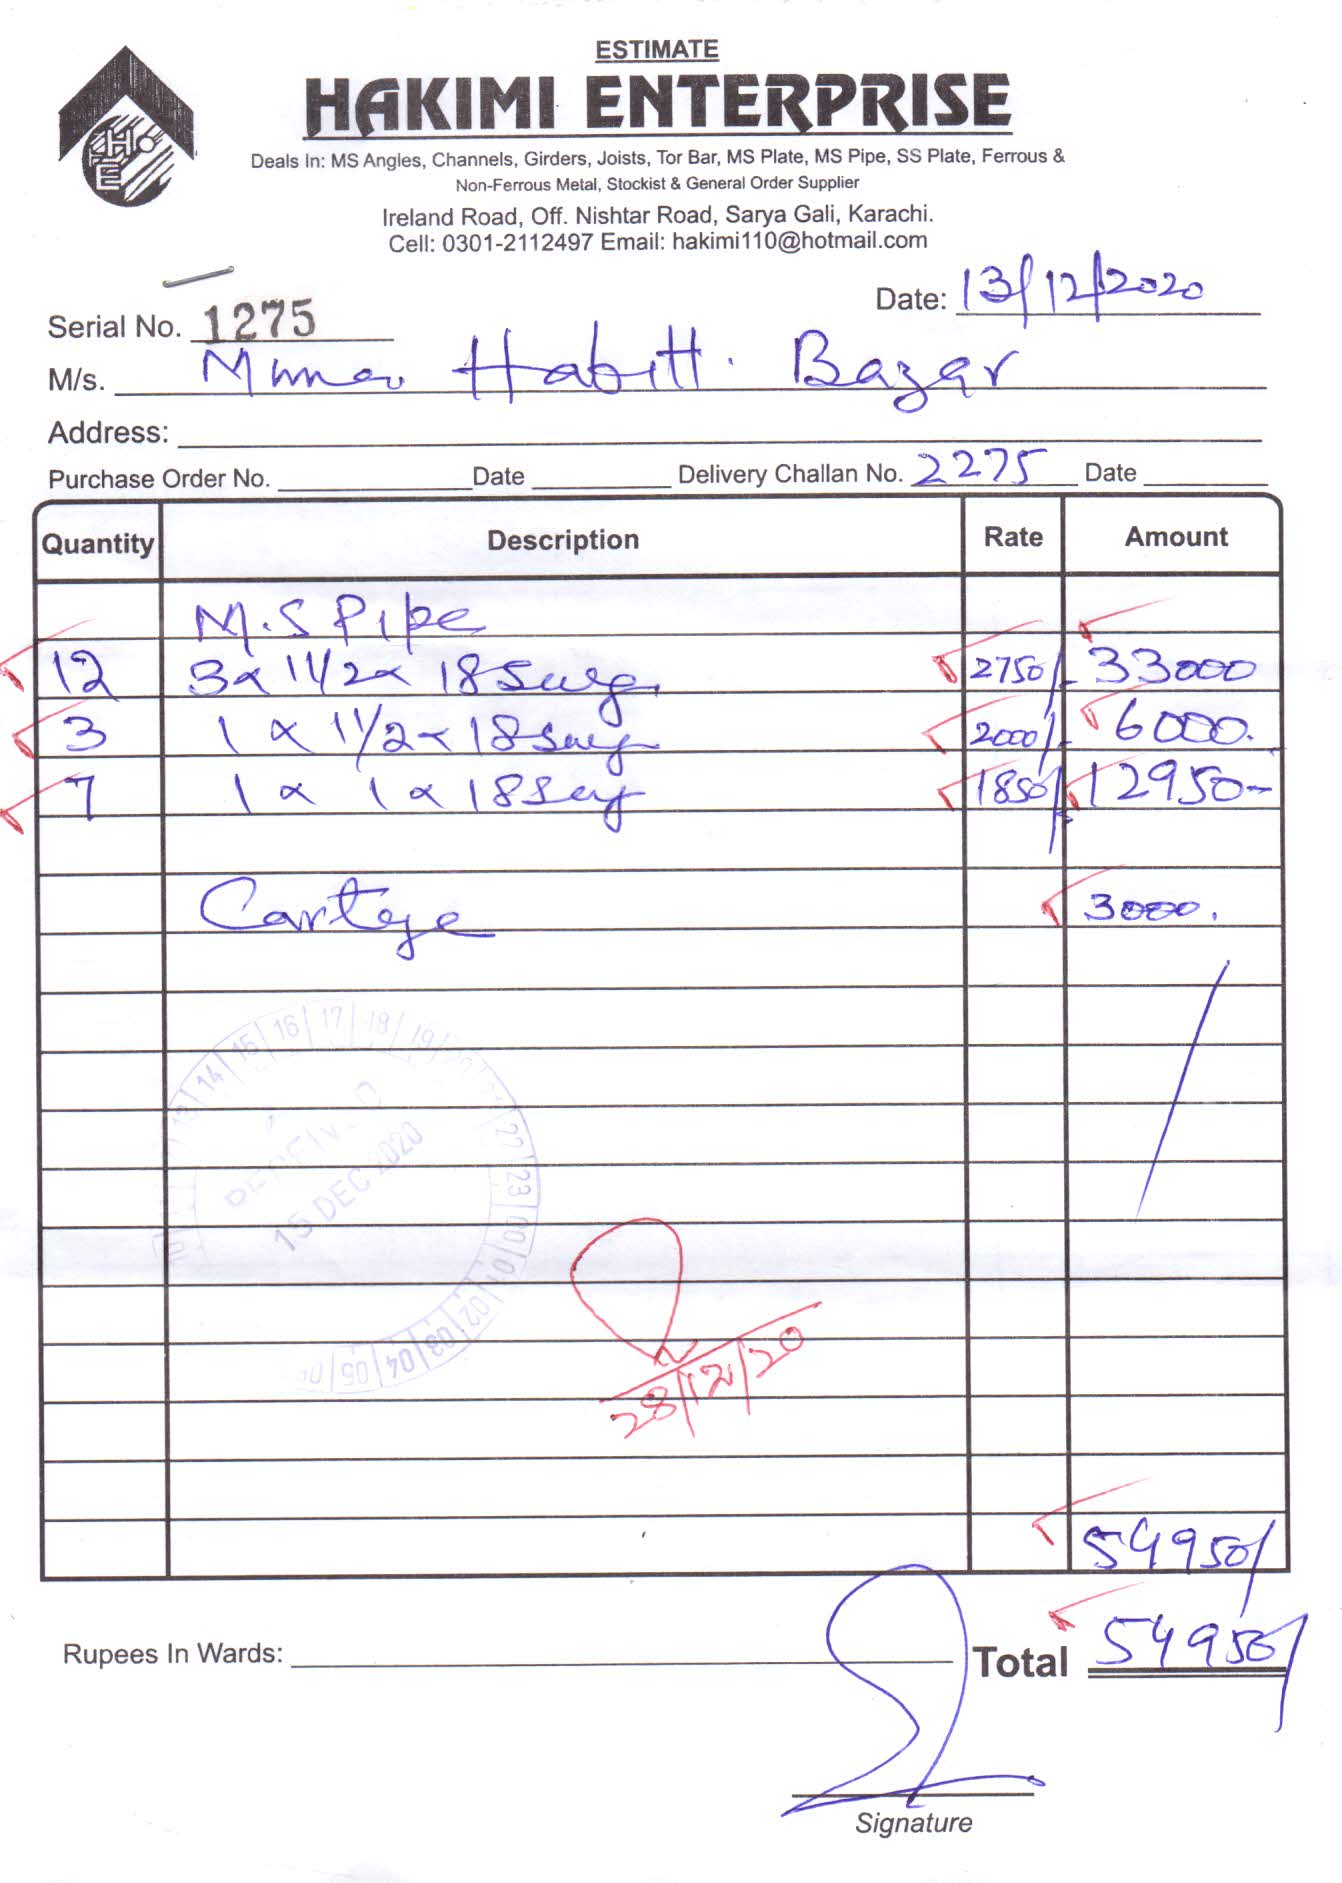 ESTIMATE
HAKIMI ENTERPRISE
HE
Deals In: MS Angles, Channels, Girders, Joists, Tor Bar, MS Plate, MS Pipe, SS Plate, Ferrous &
Non-Ferrous Metal, Stockist & General Order Supplier
Ireland Road, Off. Nishtar Road, Sarya Gali, Karachi.
Cell: 0301-2112497 Email: hakimi110@hotmail.com
Date: 13/12/2020
Serial No. 1275
M/s. Habitt. Bazar
Address:
Purchase Order No. Date Delivery Challan No. 2275 Date
Quantity Description Rate Amount
M.S Pipe
12 3x 1 1/2 x 18 swg. 2750/- 33000
3 1 x 1 1/2 x 18 swg 2000/- 6000.
7 1 x 1 x 18 swg 1850/- 12950-
Cartege 3000.
13 14 15 16 17 18 19 22 23 00 01 02 03 04 05
15 DEC 2020
28/12/20
54950/
Rupees In Wards: Total 54950/
Signature